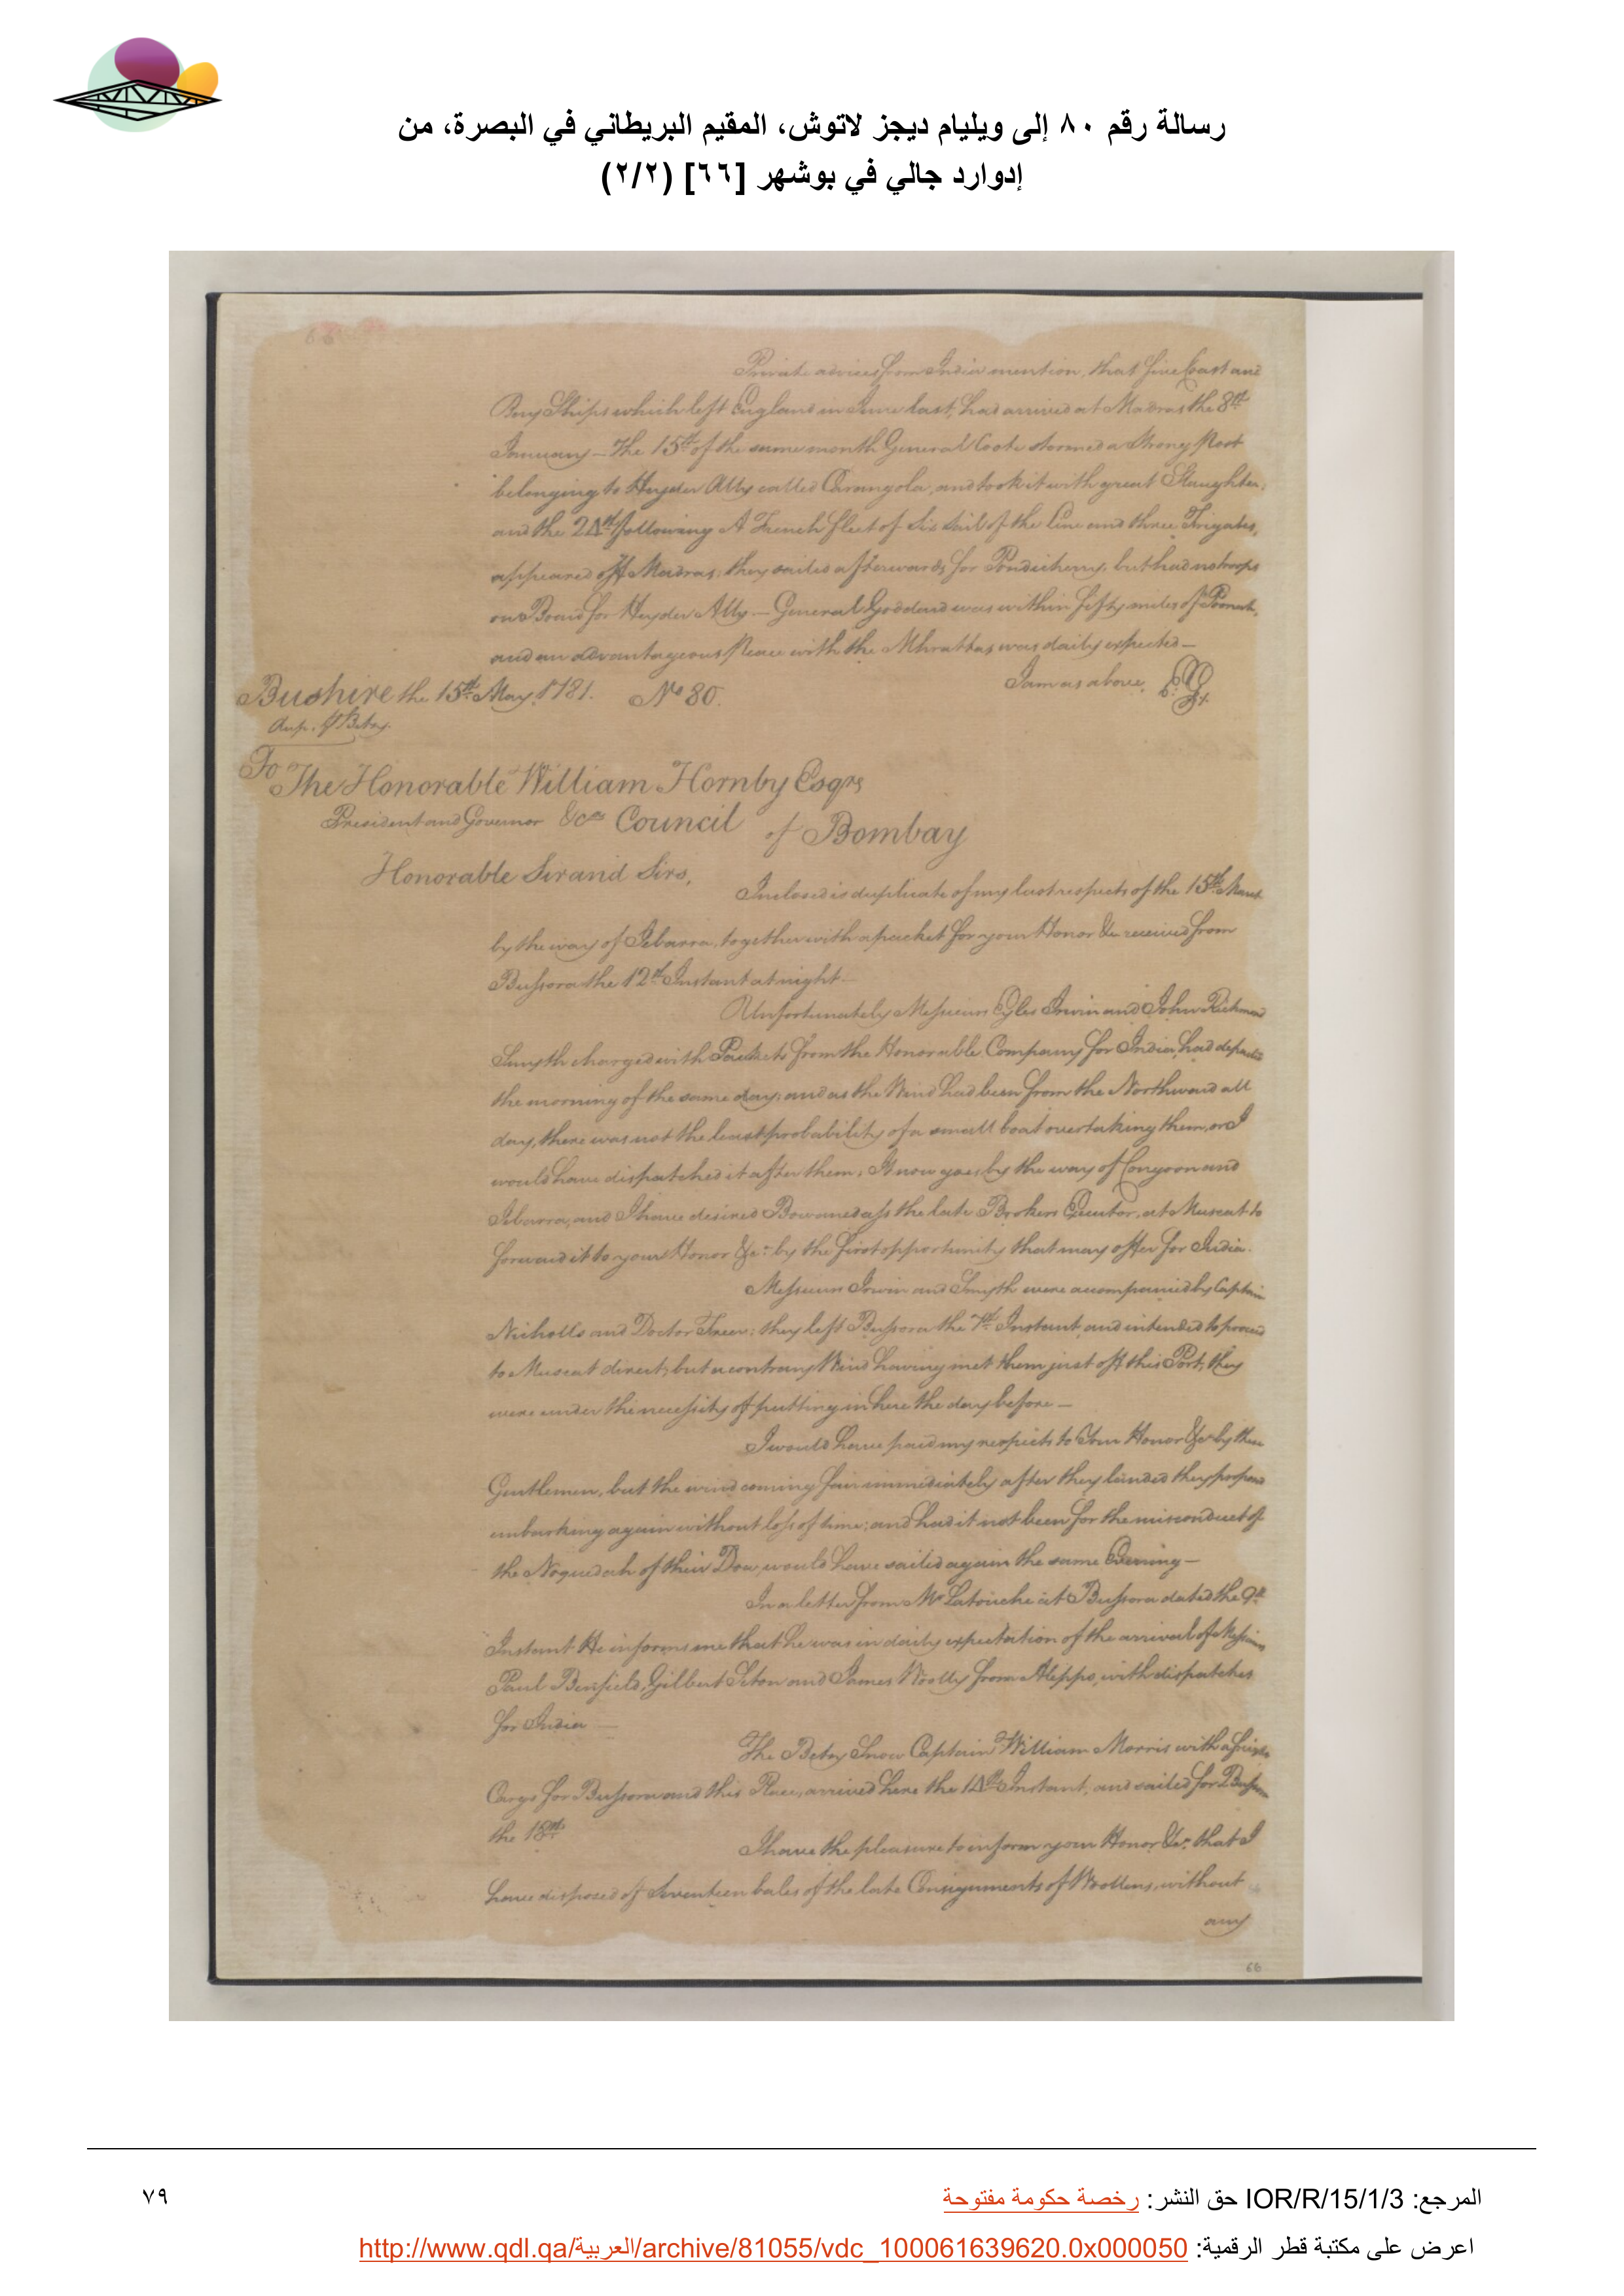 رسالة رقم ٨٠ إلى ويليام ديجز لاتوش، المقيم البريطاني في البصرة، من
إدوارد جالي في بوشهر [٦٦] (٢/٢)
66
Private advices from India mention, that five Coast and
Bay Ships which left England in June last, had arrived at Madras the 8th
January — The 15th of the same month General Coote stormed a strong Post
belonging to Hyder Ally called Carangola, and took it with great Slaughter,
and the 24th following A French fleet of Six Sail of the Line and three Frigates,
appeared off Madras; they sailed afterwards for Pondicherry, but had no troops
on Board for Heyder Ally. — General Goddard was within fifty miles of Poonah,
and an advantageous Peace with the Mhrattas was daily expected —
I am as above,
Bushire the 15th May 1781. No 80.
To The Honorable William Hornby Esqre
President and Governor &ca Council of Bombay
Honorable Sir and Sirs,
Inclosed is duplicate of my last respects of the 15th March
by the way of Zebarra, together with a packet for your Honor &c received from
Bussora the 12th Instant at night —
Unfortunately Messieurs Eyles Irwin and John Richmond
Smyth charged with Packets from the Honorable Company for India, had departed
the morning of the same day; and as the Wind had been from the Northward all
day, there was not the least probability of a small boat overtaking them, or I
would have dispatched it after them; It now goes by the way of Congoon and
Zebarra, and I have desired Bowanedass the late Brokers Executor, at Muscat to
forward it to your Honor &c: by the first opportunity that may offer for India.
Messieurs Irwin and Smyth were accompanied by Captain
Nicholls and Doctor Freer; they left Bussora the 7th Instant, and intended to proceed
to Muscat direct; but a contrary Wind having met them just off this Port, they
were under the necessity of putting in here the day before —
I would have paid my respects to Your Honor &c by these
Gentlemen, but the wind coming fair immediately after they landed they proposed
embarking again without loss of time; and had it not been for the misconduct of
the Noquedah of their Dow, would have sailed again the same Evening —
In a letter from Mr Latouche at Bussora dated the 9th
Instant He informs me that he was in daily expectation of the arrival of Messieurs
Paul Benfield, Gilbert Seton and James Woolly from Aleppo, with dispatches
for India —
The Betsy Snow Captain William Morris with a
Cargo for Bussora and this Place, arrived here the 14th Instant, and sailed for Bussora
the 18th
I have the pleasure to inform your Honor &c: that I
have disposed of Seventeen bales of the late Consignments of Woollens, without
any
66
المرجع: IOR/R/15/1/3 حق النشر: رخصة حكومة مفتوحة
٧٩
اعرض على مكتبة قطر الرقمية: http://www.qdl.qa/العربية/archive/81055/vdc_100061639620.0x000050